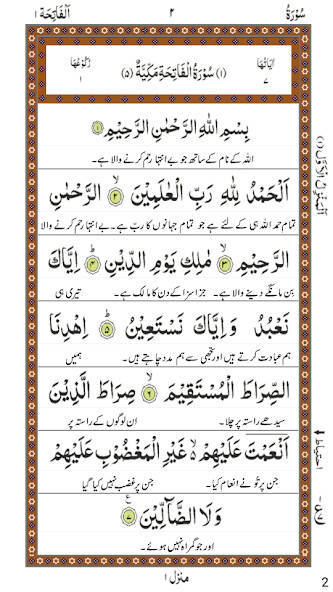 سُوْرَةُ ٢ اَلْفَاتِحَة ١
اٰيَاتُهَا ٧ (١) سُوْرَةُ الْفَاتِحَةِ مَكِّيَّةٌ (٥) رُكُوْعُهَا ١
بِسْمِ اللّٰهِ الرَّحْمٰنِ الرَّحِيْمِ ۝١
اللہ کے نام کے ساتھ جو بے انتہا رحم کرنے والا ہے۔
اَلْحَمْدُ لِلّٰهِ رَبِّ الْعٰلَمِيْنَ ۙ۝٢ الرَّحْمٰنِ
تمام حمد اللہ ہی کے لئے ہے جو تمام جہانوں کا ربّ ہے۔ بے انتہا رحم کرنے والا
الرَّحِيْمِ ۙ۝٣ مٰلِكِ يَوْمِ الدِّيْنِ ؕ۝٤ اِيَّاكَ
بن مانگے دینے والا ہے۔ جزا سزا کے دن کا مالک ہے۔ تیری ہی
نَعْبُدُ وَاِيَّاكَ نَسْتَعِيْنُ ؕ۝٥ اِهْدِنَا
ہم عبادت کرتے ہیں اور تجھی سے ہم مدد چاہتے ہیں۔ ہمیں
الصِّرَاطَ الْمُسْتَقِيْمَ ۙ۝٦ صِرَاطَ الَّذِيْنَ
سیدھے راستہ پر چلا۔ ان لوگوں کے راستہ پر
اَنْعَمْتَ عَلَيْهِمْ ۙ غَيْرِ الْمَغْضُوْبِ عَلَيْهِمْ
جن پر تُو نے انعام کیا۔ جن پر غضب نہیں کیا گیا
وَلَا الضَّآلِّيْنَ ۝٧
اور جو گمراہ نہیں ہوئے۔
اَلْمَنْزِلُ الْاَوَّل (١)
احتیاط
منزل ١
2